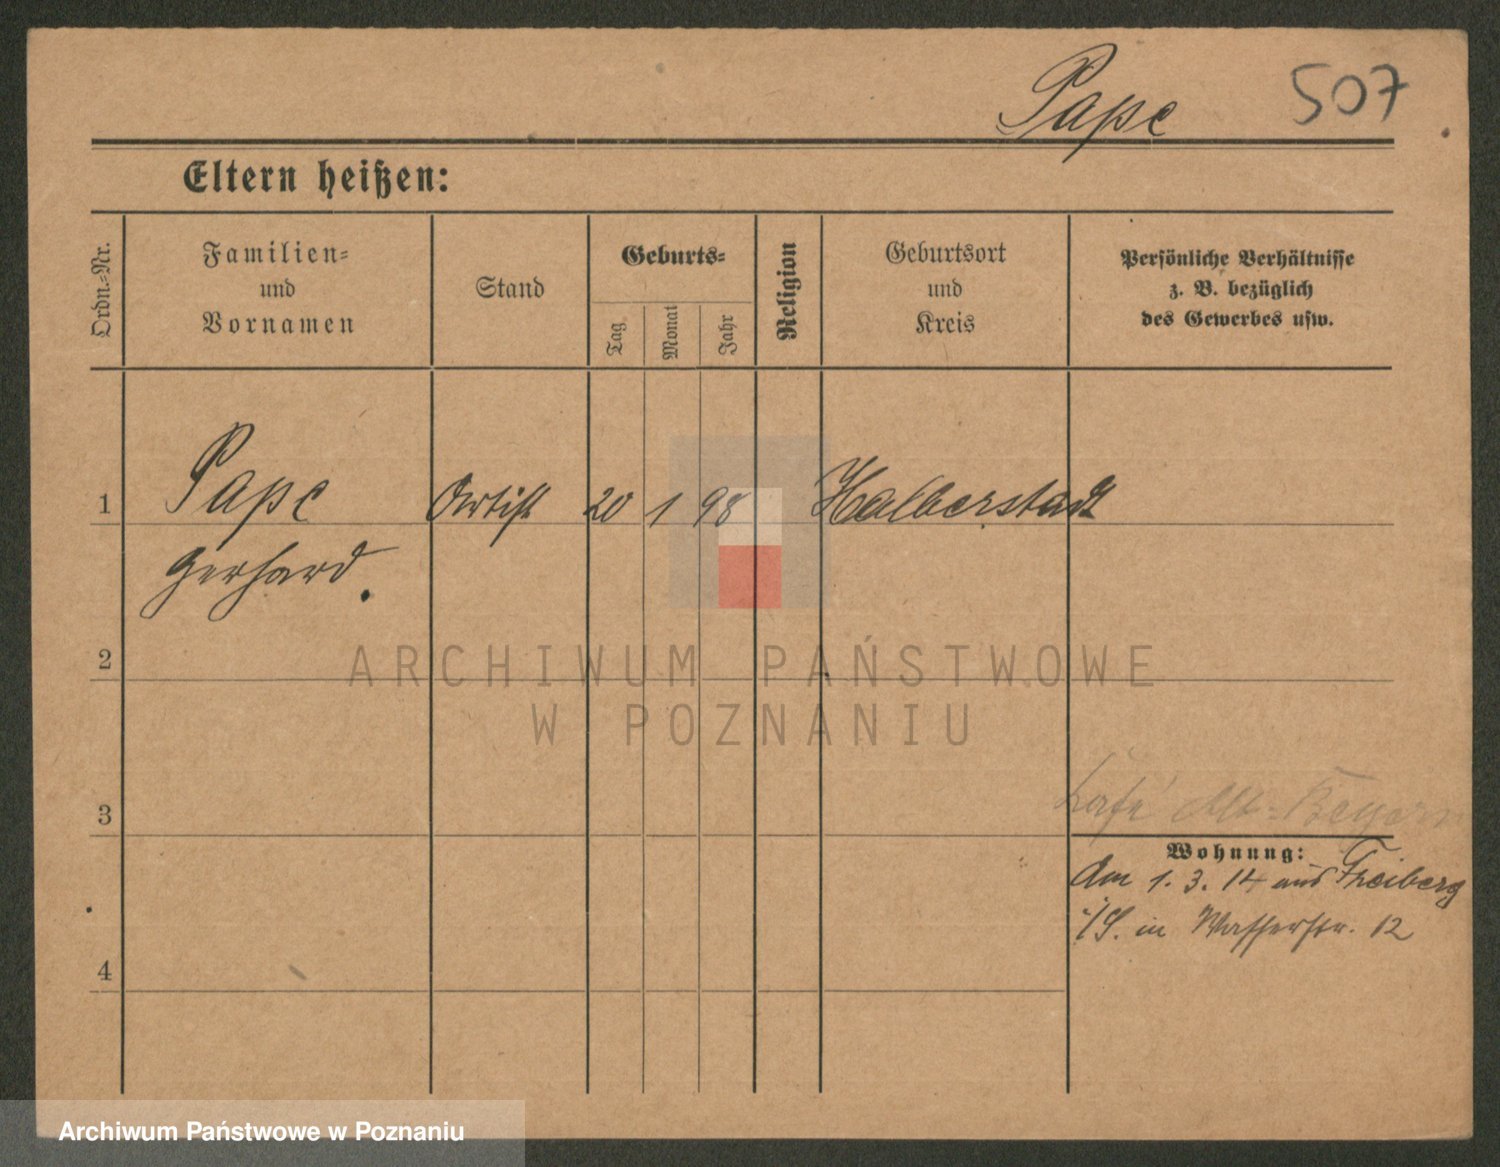 Pape 507
Eltern heißen:
Ordn.-Nr.
Familien-
und
Vornamen
Stand
Geburts-
Tag
Monat
Jahr
Religion
Geburtsort
und
Kreis
Persönliche Verhältnisse
z. B. bezüglich
des Gewerbes usw.
1 Pape Artist 20 1 98 Halberstadt
Gerhard.
2
ARCHIWUM PAŃSTWOWE
W POZNANIU
Café Alt-Beyern
3
Wohnung:
Am 1. 3. 14 aus Freiberg
i/S. in Wasserstr. 12
4
Archiwum Państwowe w Poznaniu